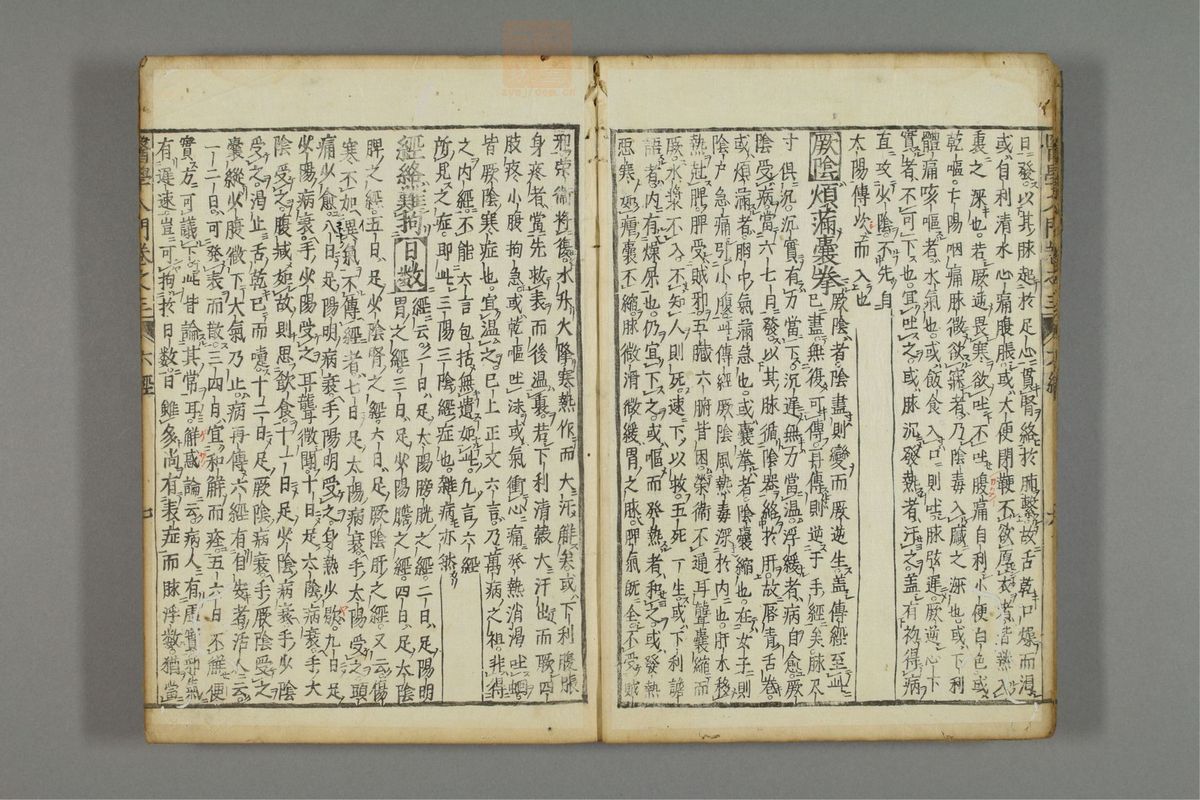 日發以其脉起於足心貫腎絡於肺繫故舌乾口燥而渴
或自利清水心痛腹脹或大便閉鞕不欲厚衣者皆熱入
裏之深也若厥逆畏寒欲吐不吐腹痛自利小便白色或
乾嘔亡陽咽痛脉微欲寐者乃陰毒入臟之深也或下利
體痛咳嘔者水氣也或飯食入口則吐脉弦遲厥逆心下
實者不可下也宜吐之或脉沉發熱者汗之蓋有物得病
直攻少陰不先自
太陽傳次而入也
厥陰煩滿囊拳厥陰者陰盡則變而厥逆生蓋傳經至此
已盡無復可傳再傳則逆于手經矣脉尺
寸俱沉沉實有力當下沉遲無力當温浮緩者病自愈厥
陰受病當六七日發以其脉循陰器絡於肝故唇青舌卷
或煩滿者胸中氣滿急也或囊拳者陰囊縮也在女子則
陰戶急痛引小腹此傳經厥陰風熱毒深於内也肝水移
熱壯脾脾受賊邪五臟六腑皆困榮衛不通耳聾囊縮而
厥水漿不入不知人則死速下以救五死一生或下利譫
語者内有燥屎也仍宜下之或嘔而發熱者和之或發熱
惡寒如瘧囊不縮脉微滑微緩胃之脉脾氣既全不受賊
邪榮衛將復水升火降寒熱作而大汗解矣或下利腹脹
身疼者當先救表而後温裏若下利清穀大汗出而厥四
肢疼小腹拘急或乾嘔吐沫或氣衝心痛發熱消渴吐蛔
皆厥陰寒症也宜温之已上正文六言乃萬病之祖非得
之内經不能六言包括無遺如此九言病人六經
所見之症即此三陽三陰經症也雜病亦然
經絡難拘日數經云一日足太陽膀胱之經二日足陽明
胃之經三日足少陽膽之經四日足太陰
脾之經五日足少陰腎之經六日足厥陰肝之經又云傷
寒不加異氣不傳經者七日足太陽病衰手太陽受之頭
痛少愈八日足陽明病衰手陽明受之身熱少歇九日足
少陽病衰手少陽受之耳聾微聞十日足太陰病衰手太
陰受之腹減如故則思飲食十一日足少陰病衰手少陰
受之渴止舌乾已而嚏十二日足厥陰病衰手厥陰受之
囊縱少腹微下大氣乃止病再傳六經有自安者活人云
一二日可發表而散三四日宜和解而痊五六日不觧便
實方可議下此皆論其常耳觧惑論云病人有
有遲速豈可拘於日數日雖多尚有表症而脉浮數猶當
醫學入門卷之三 六經 七